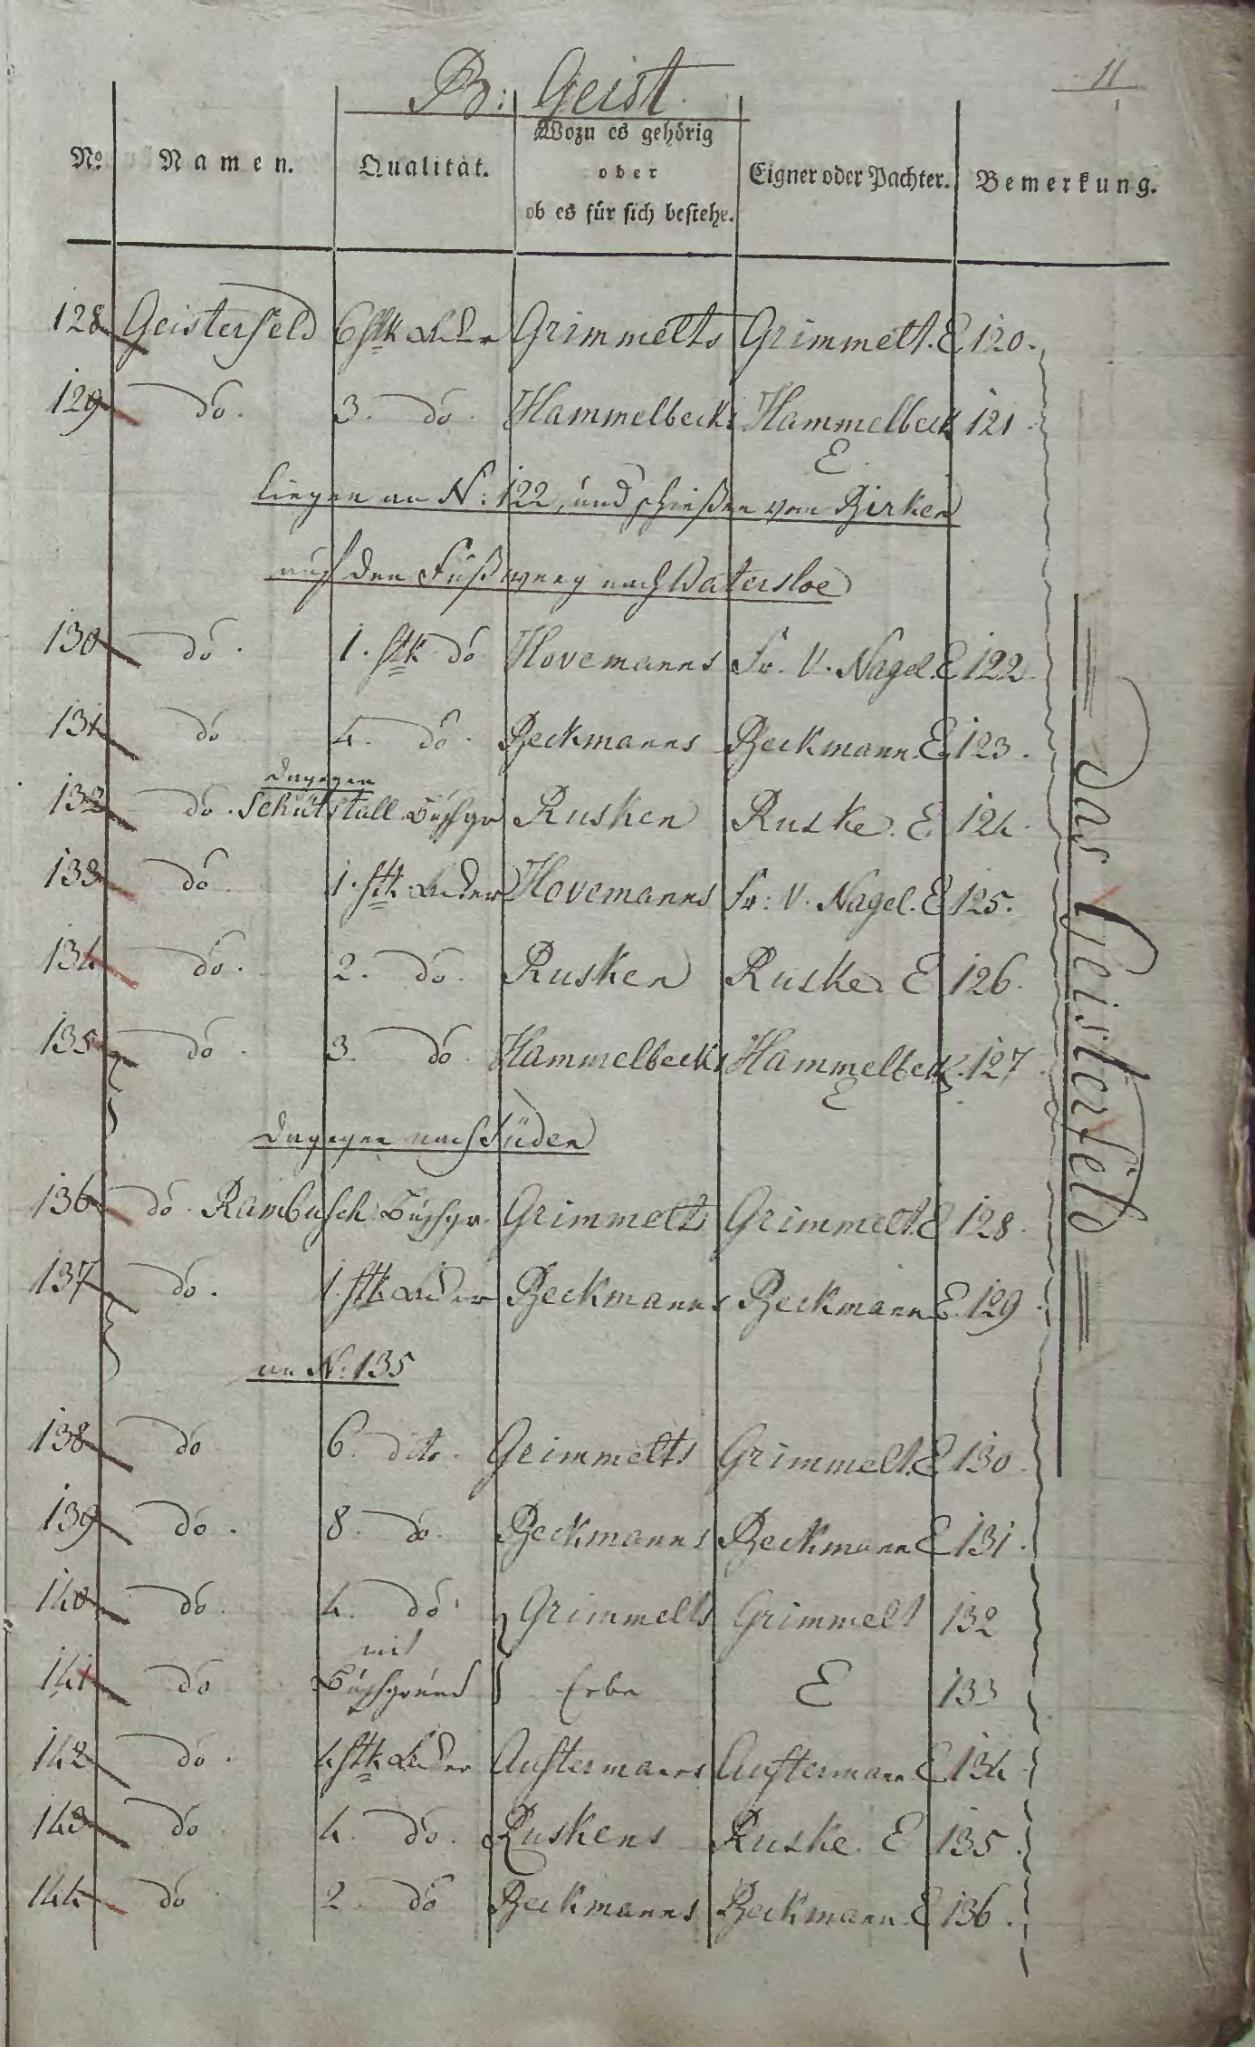 11
B: Geist
No. Namen. Qualität. Wozu es gehörig oder ob es für sich bestehe. Eigner oder Pachter. Bemerkung.
128 Geisterfeld 6 stk Länder Grimmelts Grimmelt. E 120.
129 do. 3. do. Hammelbecks Hammelbeck E 121
liegen an N: 122, und schießen vom Birken
auf den Fußweg nach Watersloe
130 do. 1. stk do Hovemanns Fr. V. Nagel. E 122
131 do 4. do. Beckmanns Beckmann. E 123.
dagegen
132 do. Schützstall Buschgr Rusken Ruske. E 124.
133 do 1. stk Länder Hovemanns Fr: V. Nagel. E 125.
134 do. 2. do. Rusken Ruske E 126.
135 do. 3. do. Hammelbecks Hammelbeck E 127
dagegen nach Süden
136 do. Rambusch Buschgr. Grimmelts Grimmelt. E 128.
137 do. 1. stk Länder Beckmanns Beckmann E. 129
an N: 135
138 do 6. dito. Grimmelts Grimmelt. E 130
139 do. 8. do. Beckmanns Beckmann E 131.
140 do. 4. do Grimmelts Grimmelt 132
mit
141 do Buschgrund Erbe E 133
142 do. 4 stk Länder Austermanns Austermann E 134
143 do 4. do. Ruskens Ruske. E 135.
144 do 2. do Beckmanns Beckmann. E 136.
Das Geisterfeld